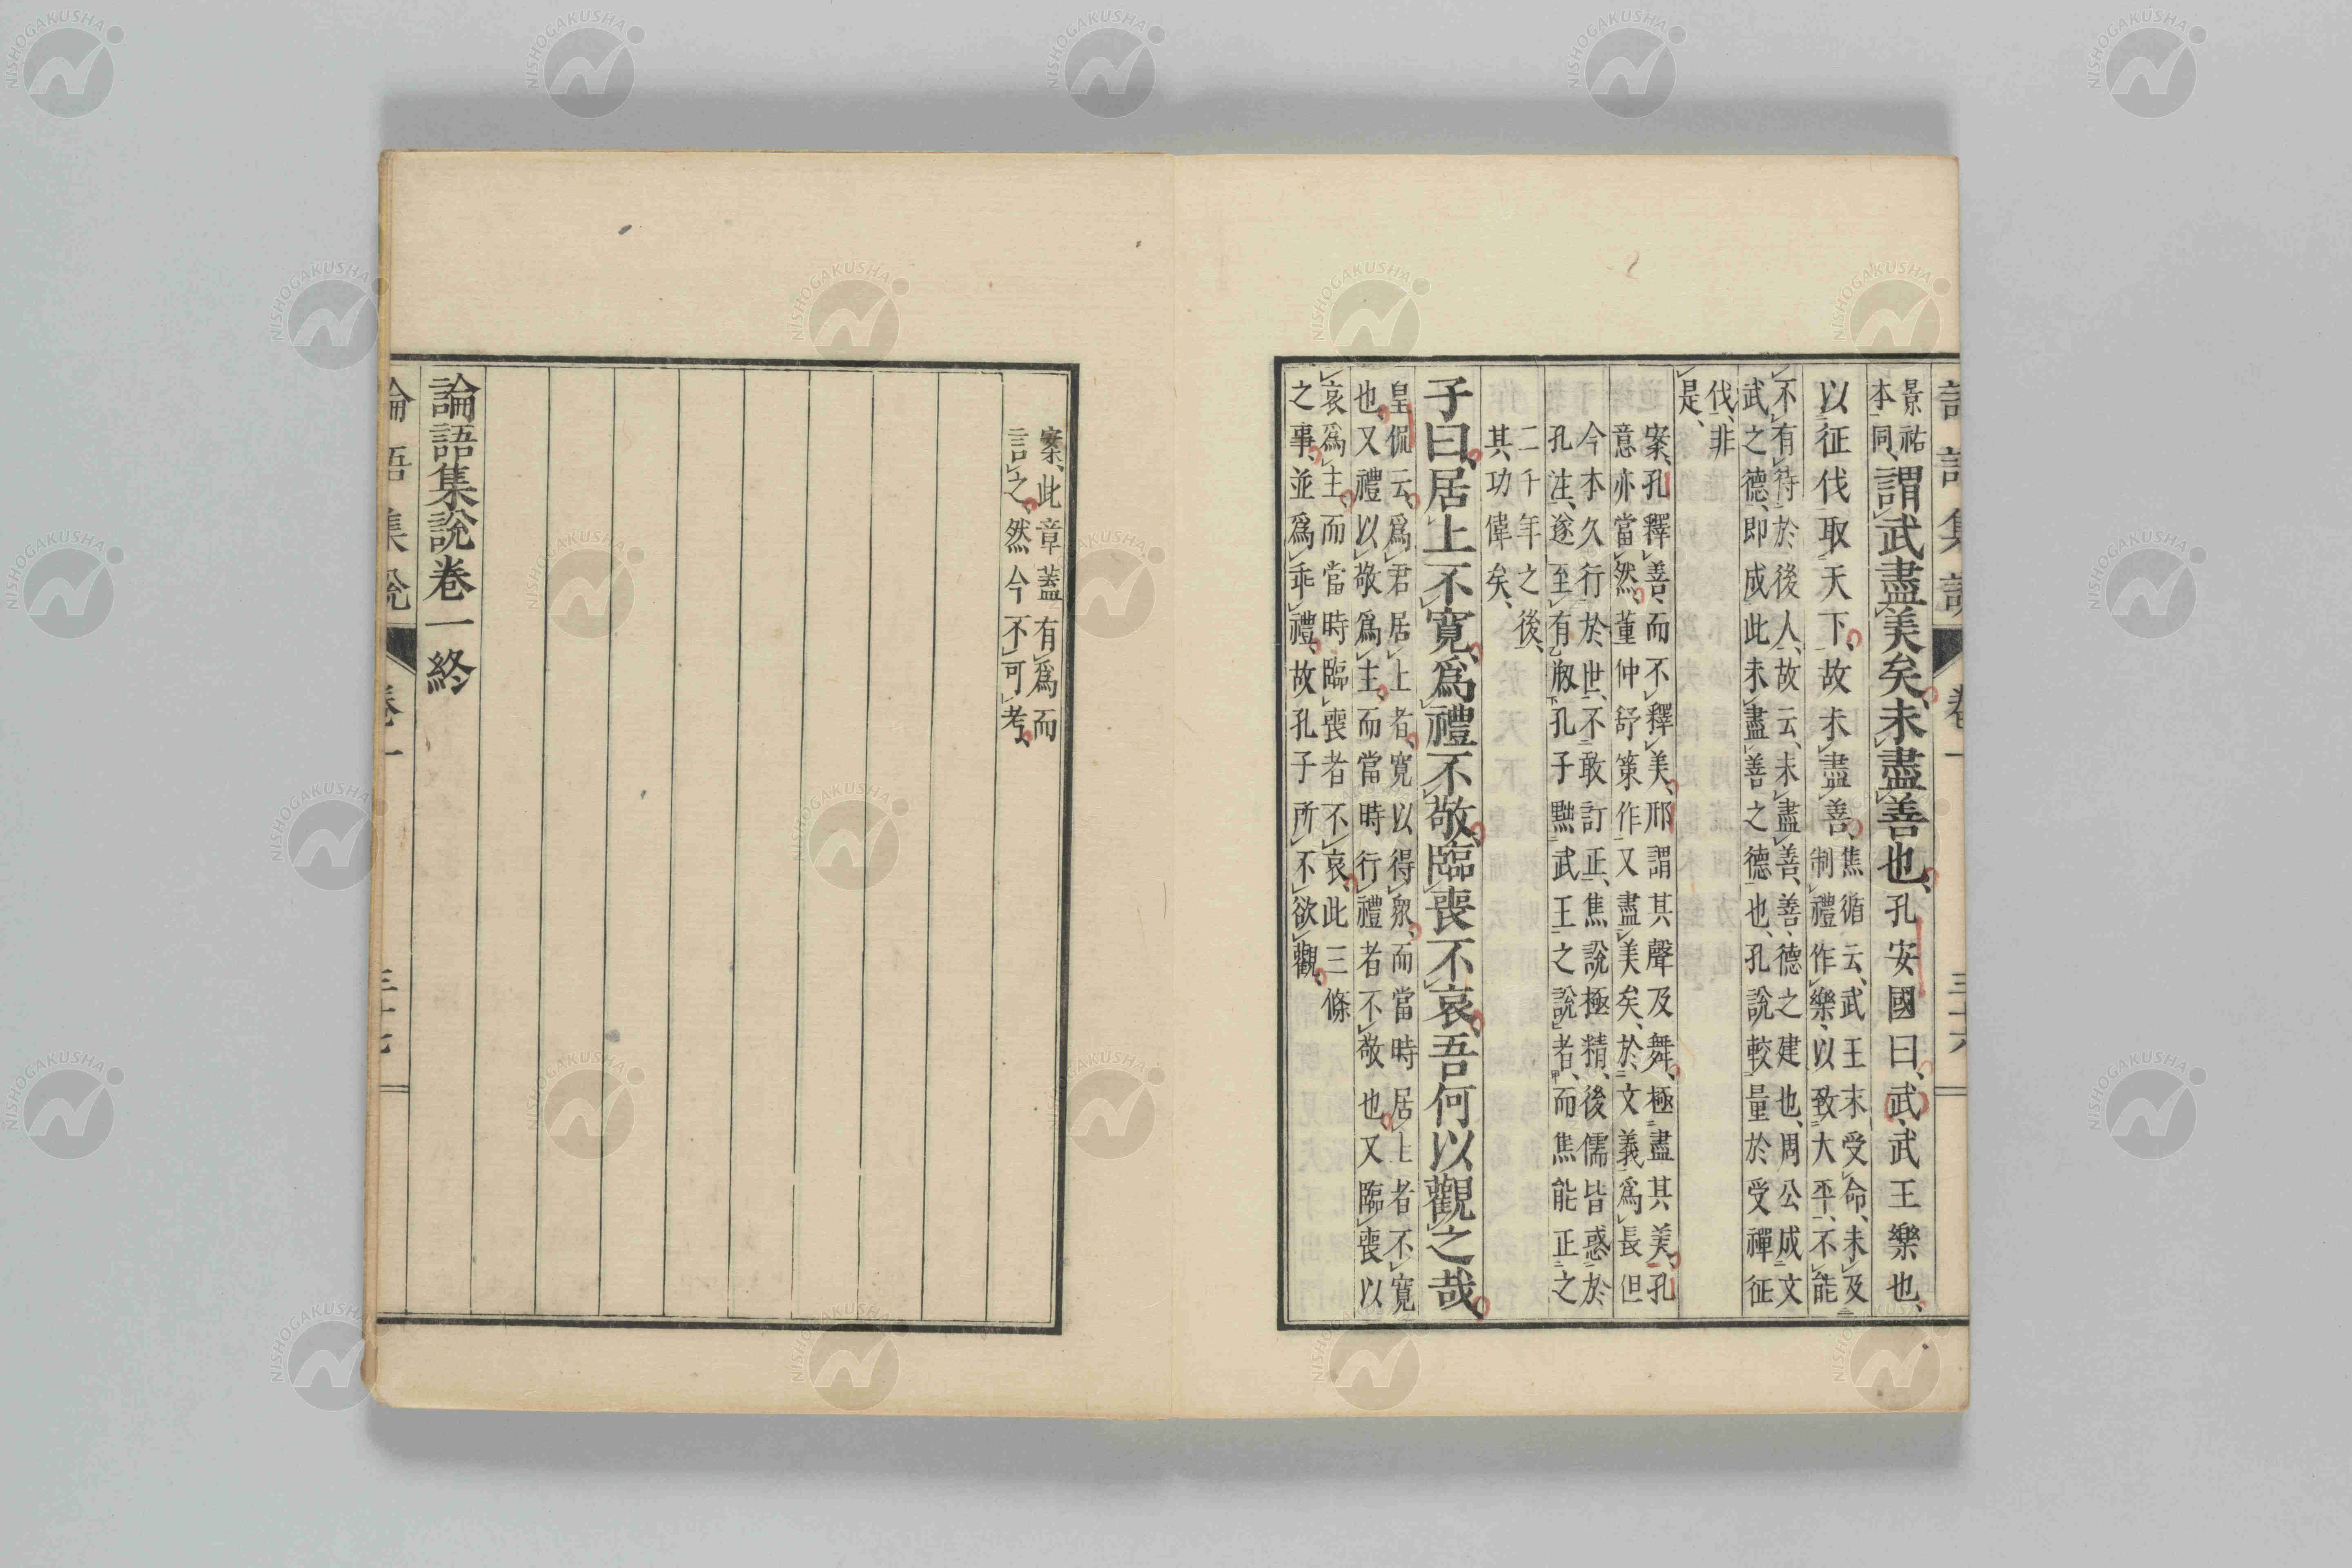 景祐
本同、謂武盡美矣、未盡善也、孔安國曰、武、武王樂也、
以征伐取天下、故未盡善、焦循云、武王末受命、未及
制禮作樂、以致大平、不能
不有待於後人、故云、未盡善、善、德之建也、周公成文
武之德、即成此未盡善之德也、孔說較量於受禪征
伐、非
是、
案、孔釋善、而不釋美、邢謂其聲及舞、極盡其美、孔
意亦當然、董仲舒策作又盡美矣、於文義爲長、但
今本久行於世、不敢訂正、焦說極精、後儒皆惑於
孔注、遂至有貶孔子黜武王之說者、而焦能正之
二千年之後、
其功偉矣、
子曰、居上不寬、爲禮不敬、臨喪不哀、吾何以觀之哉、
皇侃云、爲君居上者、寬以得衆、而當時居上者不寬
也、又禮以敬爲主、而當時行禮者不敬也、又臨喪以
哀爲主、而當時臨喪者不哀、此三條
之事、並爲乖禮、故孔子所不欲觀、
案、此章蓋有爲而
言之、然今不可考、
論語集說卷一終
論語集說 卷一 三十七